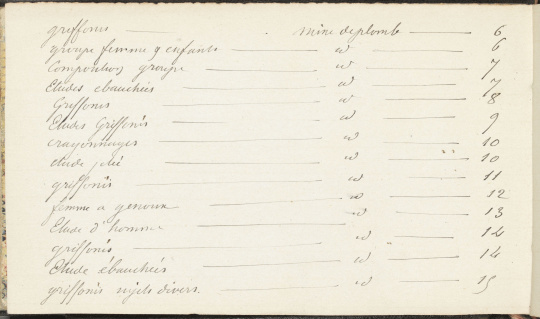 griffonis mine de plomb 6
groupe femme & enfants id 6
Composition groupe id 7
Etudes ébauchées id 7
Griffonis id 8
Etudes Griffonis id 9
crayonnages id 10
etude id 10
griffonis id 11
femme a genoux id 12
Etude d'homme id 13
griffonis id 14
Etude ébauchées id 14
griffonis sujets divers. id 15